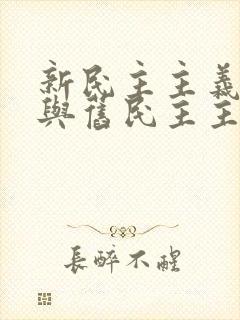 新民主主義
與舊民主主
長醉不醒